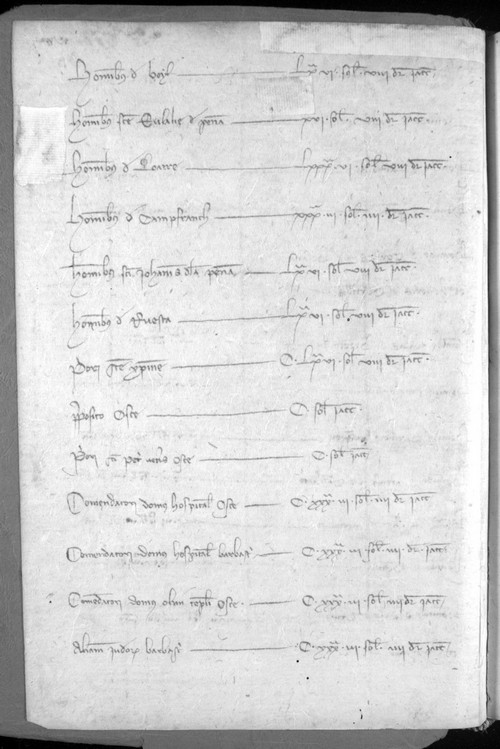 Hominibus de boyl — Lxª vi · sol · viii dr iacc
hominibus sce Eulalie de pena — xvi · sol · viii dr iacc ·
hominibus de Loarre — Lxxxª vi · sol viii dr iacc ·
hominibus de Campfranch — xxxª iii · sol · iiii dr iacc ·
hominibus sci iohannis dla pena — Lxª vi · sol viii dr iacc ·
hominibus de Ruesta — Lxª vi · sol · viii dr iacc ·
Priori sce xpine — C · Lxª vi · sol viii dr iacc
Preposito Osce — C sol iacc ·
Priori sci petri veteris osce — C · sol iacc
Comendatori domus hospitalis Osce — C · xxxª iii · sol · iiii dr iacc
Comendatori domus hospitalis barbastri — C · xxxª iii sol · iiii · dr iacc
Comendatori domus olim templi Osce · — C · xxxª iii · sol iiii dr iacc
Aliame iudeorum barbastri — C · xxxª iii · sol · iiii dr iacc